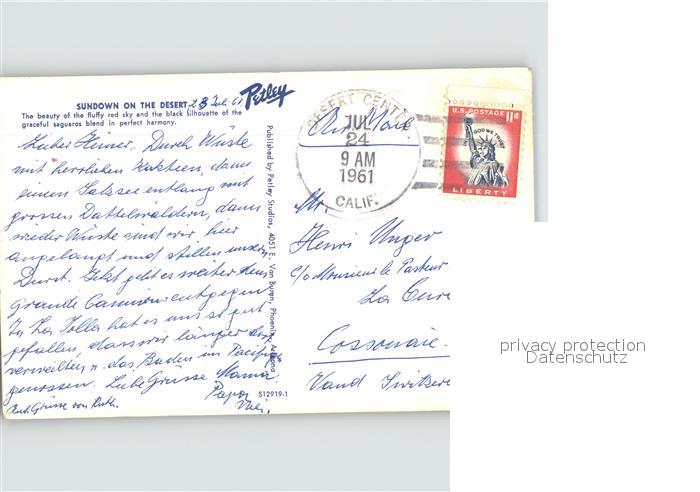 SUNDOWN ON THE DESERT 23 Jul. 61
The beauty of the fluffy red sky and the black silhouette of the
graceful saguaros blend in perfect harmony.
Petley
Lieber Heiner. Durch Wüste
mit herrlichen Kakteen, dann
einem Salzsee entlang mit
grossen Dattelwäldern, dann
wieder Wüste sind wir hier
angelangt und stillen unsern
Durst. Jetzt geht es weiter dem
Grande Canion entgegen
In La Jolla hat es uns so gut
gefallen, dass wir länger dort
verweilten u. das Baden im Pacific
genossen. Liebe Grüsse Mama
Papa
Auch Grüsse von Ruth.
Published by Petley Studios, 4051 E. Van Buren, Phoenix, Arizona
S12919-1
DESERT CENTER
JUL
24
9 AM
1961
CALIF.
Air Mail
U.S. POSTAGE 11¢
IN GOD WE TRUST
LIBERTY
Mr.
Henri Unger
c/o Monsieur le Pasteur
La Cure
Cossonaie
Vaud Switzer
privacy protection
Datenschutz